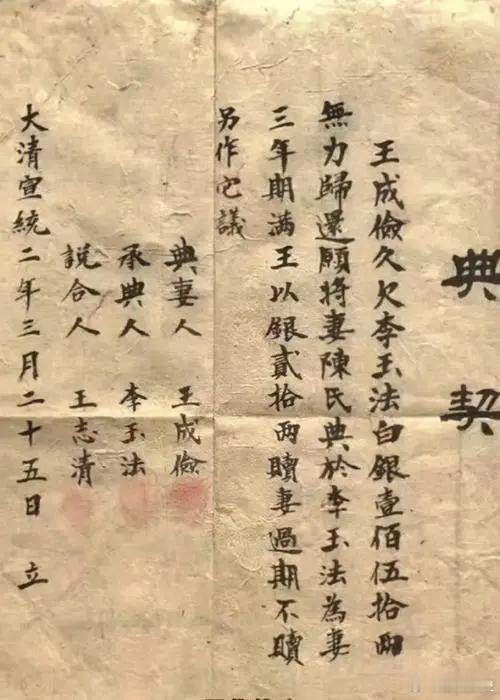 典契
王成儉久欠李玉法白銀壹佰伍拾兩
無力歸還願將妻陳氏典於李玉法為妻
三年期满王以銀貳拾兩贖妻過期不贖
另作它議
典妻人 王成儉
承典人 李玉法
説合人 王志清
大清宣統二年三月二十五日 立